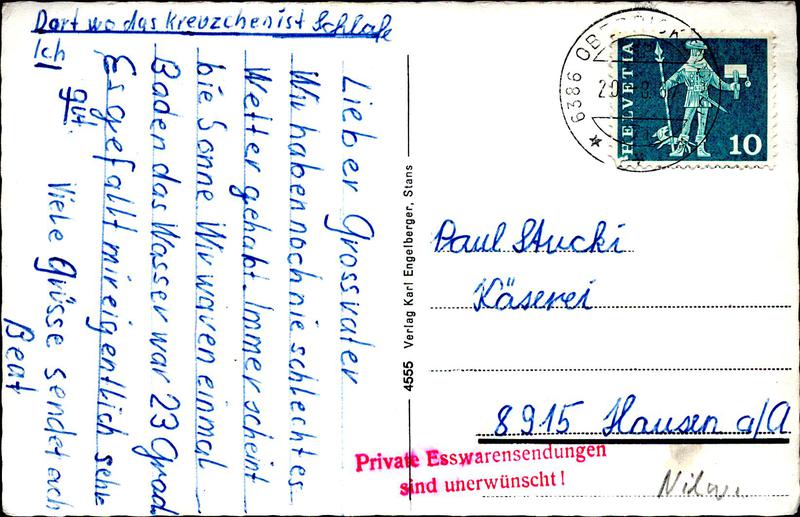 Dort wo das Kreuzchen ist Schlafe
Ich
Lieber Grossvater
Wir haben noch nie schlechtes
Wetter gehabt. Immer scheint
bie Sonne Wir waren einmal
Baden das Wasser war 23 Grad
Es gefällt mir eigentlich sehr
gut.
Viele Grüsse sendet ach
Beat
4555 Verlag Karl Engelberger, Stans
6386
HELVETIA
10
Paul Stucki
Käserei
8915 Hausen a/A
Private Esswarensendungen
sind unerwünscht!